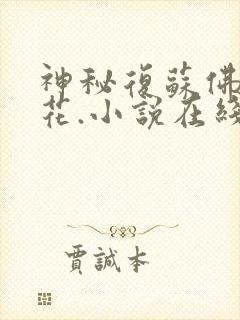 神秘復蘇佛
花.小說在綫
賈誠本